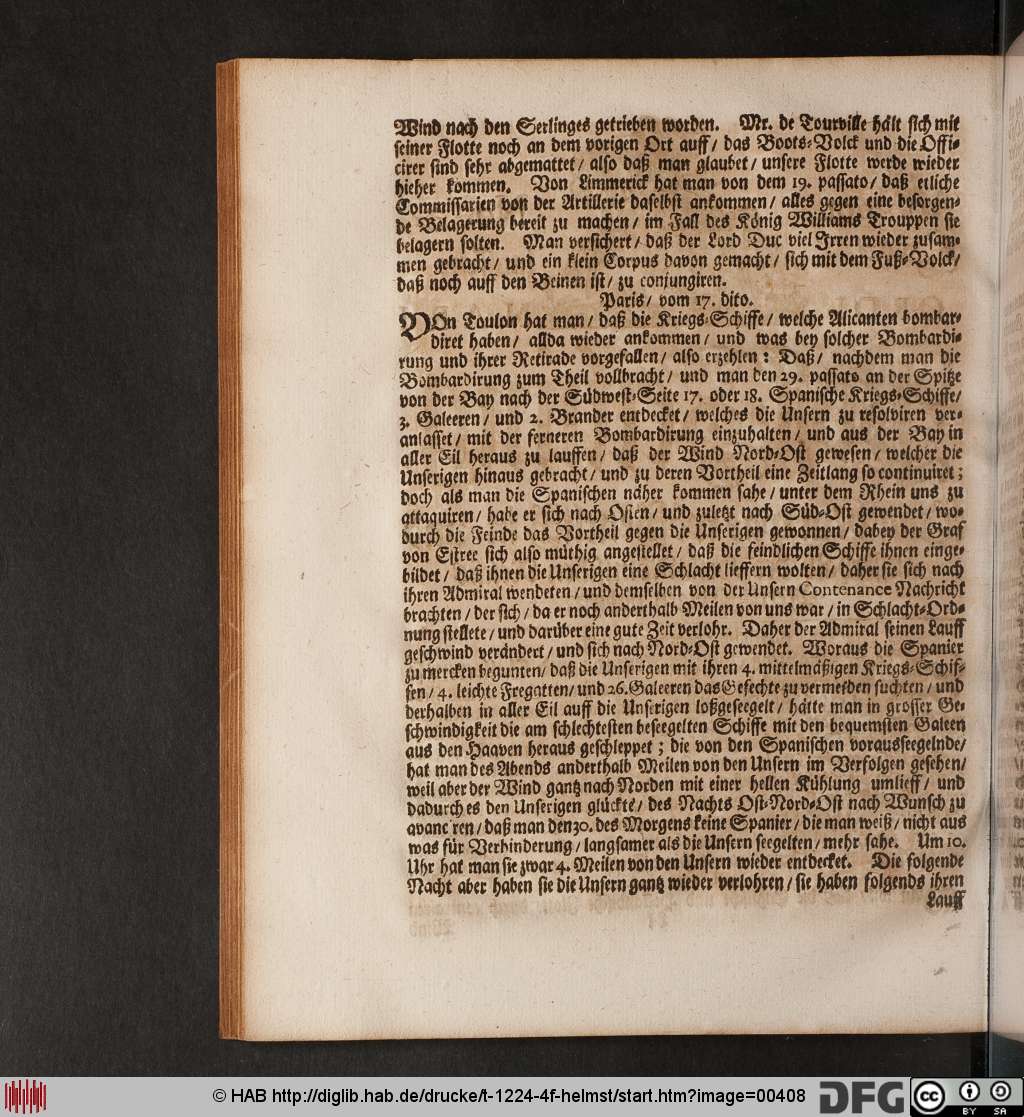 Wind nach den Serlinges getrieben worden. Mr. de Tourville hält sich mit
seiner Flotte noch an dem vorigen Ort auff/ das Boots-Volck und die Offi-
cirer sind sehr abgemattet/ also daß man glaubet/ unsere Flotte werde wieder
hieher kommen. Von Limmerick hat man von dem 19. passato/ daß etliche
Commissarien von der Artillerie daselbst ankommen/ alles gegen eine besorgen-
de Belagerung bereit zu machen/ im Fall des König Williams Trouppen sie
belagern solten. Man versichert/ daß der Lord Duc viel Irren wieder zusam-
men gebracht/ und ein klein Corpus davon gemacht/ sich mit dem Fuß-Volck/
daß noch auff den Beinen ist/ zu conjungiren.
Paris/ vom 17. dito.
VOn Toulon hat man/ daß die Kriegs-Schiffe/ welche Alicanten bombar-
diret haben/ allda wieder ankommen/ und was bey solcher Bombardi-
rung und ihrer Retirade vorgefallen/ also erzehlen: Daß/ nachdem man die
Bombardirung zum Theil vollbracht/ und man den 29. passato an der Spitze
von der Bay nach der Südwest-Seite 17. oder 18. Spanische Kriegs-Schiffe/
3. Galeeren/ und 2. Brander entdecket/ welches die Unsern zu resolviren ver-
anlasset/ mit der ferneren Bombardirung einzuhalten/ und aus der Bay in
aller Eil heraus zu lauffen/ daß der Wind Nord-Ost gewesen/ welcher die
Unserigen hinaus gebracht/ und zu deren Vortheil eine Zeitlang so continuiret;
doch als man die Spanischen näher kommen sahe/ unter dem Rhein uns zu
attaquiren/ habe er sich nach Osten/ und zuletzt nach Süd-Ost gewendet/ wo-
durch die Feinde das Vortheil gegen die Unserigen gewonnen/ dabey der Graf
von Estree sich also müthig angestellet/ daß die feindlichen Schiffe ihnen einge-
bildet/ daß ihnen die Unserigen eine Schlacht lieffern wolten/ daher sie sich nach
ihren Admiral wendeten/ und demselben von der Unsern Contenance Nachricht
brachten/ der sich/ da er noch anderthalb Meilen von uns war/ in Schlacht-Ord-
nung stellete/ und darüber eine gute Zeit verlohr. Daher der Admiral seinen Lauff
geschwind verändert/ und sich nach Nord-Ost gewendet. Woraus die Spanier
zu mercken begunten/ daß die Unserigen mit ihren 4. mittelmäßigen Kriegs-Schif-
fen/ 4. leichte Fregatten/ und 26. Galeeren das Gefechte zu vermeiden suchten/ und
derhalben in aller Eil auff die Unserigen loßgeseegelt/ hätte man in grosser Ge-
schwindigkeit die am schlechtesten beseegelten Schiffe mit den bequemsten Galeen
aus den Haaven heraus geschleppet; die von den Spanischen vorausseegelnde/
hat man des Abends anderthalb Meilen von den Unsern im Verfolgen gesehen/
weil aber der Wind gantz nach Norden mit einer hellen Kühlung umlieff/ und
dadurch es den Unserigen glückte/ des Nachts Ost-Nord-Ost nach Wunsch zu
avanciren/ daß man den 30. des Morgens keine Spanier/ die man weiß/ nicht aus
was für Verhinderung/ langsamer als die Unsern seegelten/ mehr sahe. Um 10.
Uhr hat man sie zwar 4. Meilen von den Unsern wieder entdecket. Die folgende
Nacht aber haben sie die Unsern gantz wieder verlohren/ sie haben folgends ihren
Lauff
© HAB http://diglib.hab.de/drucke/t-1224-4f-helmst/start.htm?image=00408
DFG
cc BY SA